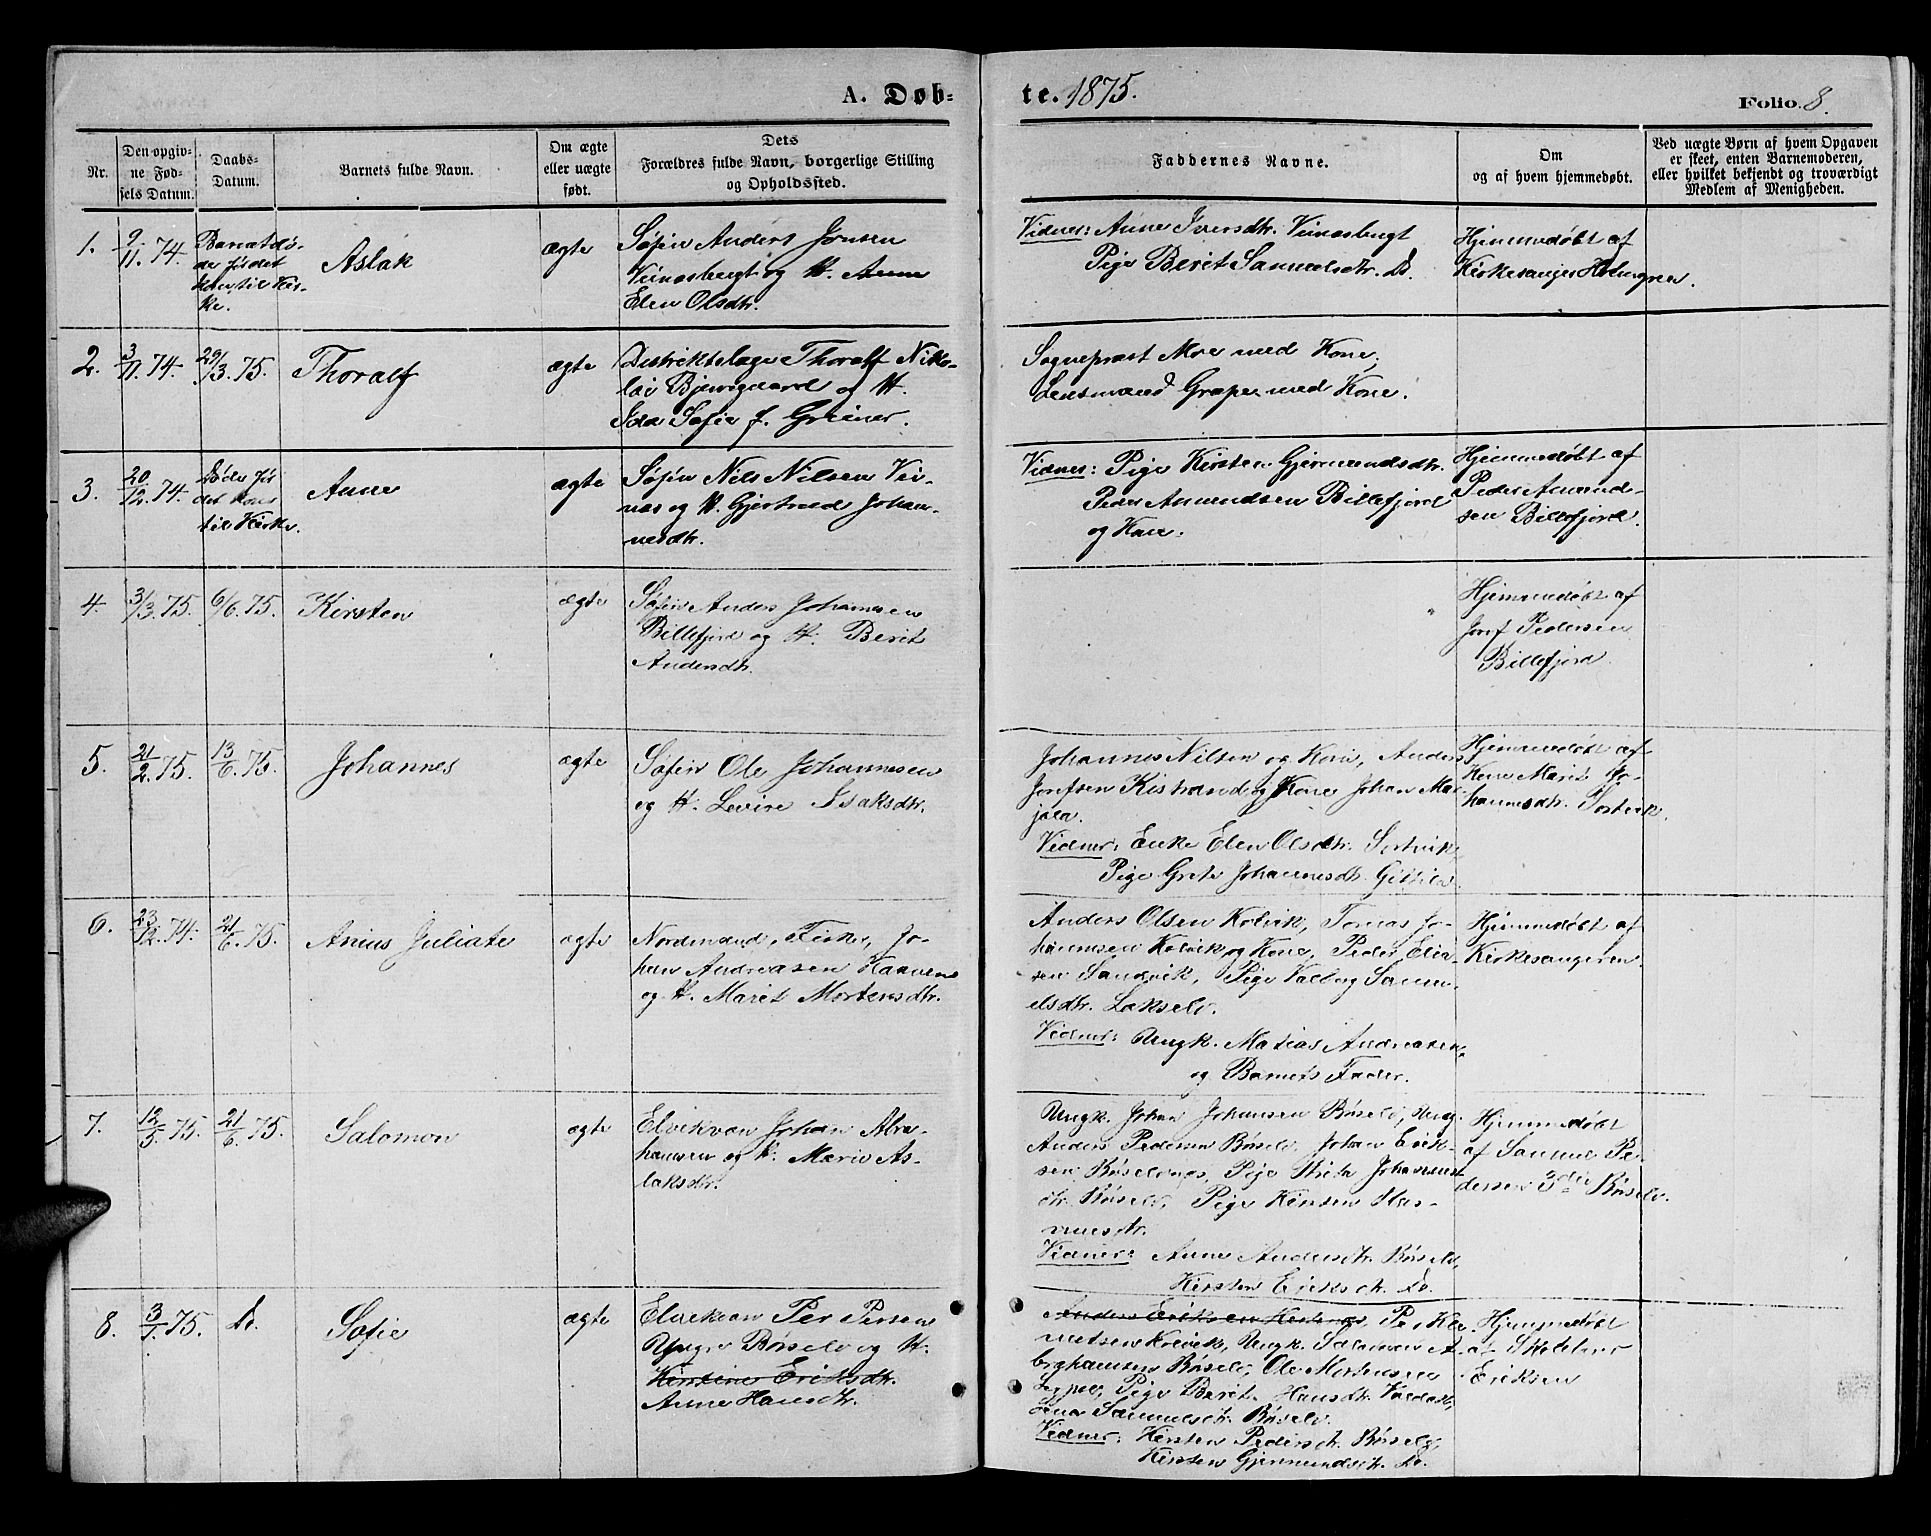 A. Døb-
te. 1875.
Folio. 8.
Nr.
Den opgiv-
ne Fød-
sels Datum.
Daabs-
Datum.
Barnets fulde Navn.
Om ægte
eller uægte
født.
Dets
Forældres fulde Navn, borgerlige Stilling
og Opholdssted.
Faddernes Navne.
Om
og af hvem hjemmedøbt.
Ved uægte Børn af hvem Opgaven
er skeet, enten Barnemoderen,
eller hvilket bekjendt og troværdigt
Medlem af Menigheden.
1.
9/11. 74.
Barnet dø-
de før det
kom til Kir-
ke.
Aslak
ægte
Søfin Anders Jonsen
og H. Anne
Elen Olsdtr.
Vidner: Anne Iversdtr.
Pige Berit Samuelsdtr. Do.
Hjemmedøbt af
Kirkesanger Holmgren.
2.
3/11. 74.
29/3. 75.
Thoralf
ægte
Distriktslæge Thoralf Niko-
lai og H.
Ida Sofie f. Greiner.
Sogneprest Moe med Kone,
Lensmand Grape med Kone.
3.
20/12. 74.
Døde før
det kom
til Kirke.
Anne
ægte
Søfin Nils Nilsen Vei-
nes og H. Gjertrud Johan-
nesdtr.
Vidner: Pige Kirsten Gjermundsdtr.
Peder Amundsen Billefjord
og Kone.
Hjemmedøbt af
Peder Amund-
sen Billefjord.
4.
31/3. 75.
6/6. 75.
Kirsten
ægte
Søfin Anders Johannesen
Billefjord og H. Berit
Andersdtr.
Hjemmedøbt af
Josef Pedersen
Billefjord.
5.
21/2. 75.
13/6. 75.
Johannes
ægte
Søfin Ole Johannesen
og H. Levise Isaksdtr.
Johannes Nilsen og Kone, Anders
Josefsen Kistrand og Kone Johan Mar-
jala.
Vidner: Enke Elen Olsdtr. Sortvik,
Pige Grete Johannesdtr.
Hjemmedøbt af
Kone Marit Jo-
hannesdtr. Sortvik.
6.
23/12. 74.
21/6. 75.
Anius Juliate
ægte
Nordmand, Fisker, Jo-
han Andreasen Kaavene
og H. Marit Mortensdtr.
Anders Olsen Kolvik, Tomas Jo-
hannesen Kolvik og Kone, Peder Elia-
sen Sandvik, Pige Valborg Samu-
elsdtr. Lakselv.
Vidner: Ungk. Matias Andreasen,
og Barnets Fader.
Hjemmedøbt af
Kirkesangeren.
7.
12/5. 75.
21/6. 75.
Salomon
ægte
Elvekvæn Johan Abra-
hamsen og H. Marie As-
laksdtr.
Ungk. Johan Johansen Børselv, Ung.
Anders Pedersen Børselv, Johan Erik-
sen Børselvnes, Pige Johannes-
dtr. Børselv, Pige Kirsten Has-
nuesdtr.
Vidner: Anne Andersdtr. Børselv,
Kirsten Eriksdtr. Do.
Hjemmedøbt
af Samuel Pe-
dersen 3die Børselv.
8.
3/1. 75.
Do.
Sofie
ægte
Elvekvæn Per Persen
Yngre Børselv og H.
Kirstine Eriksdtr.
Anne Hansdtr.
Anders Eriksen Hestnes, Per
Kolvik, Ungk. Salomon A-
brahamsen Børselv, Ole Mortensen
Pige Berit Hansdtr.
Lena Samuelsdtr. Børselv.
Vidner: Kirsten Pedersdtr. Børselv,
Kirsten Gjermundsdtr. Do.
Hjemmedøbt
af Skolelærer
Eriksen